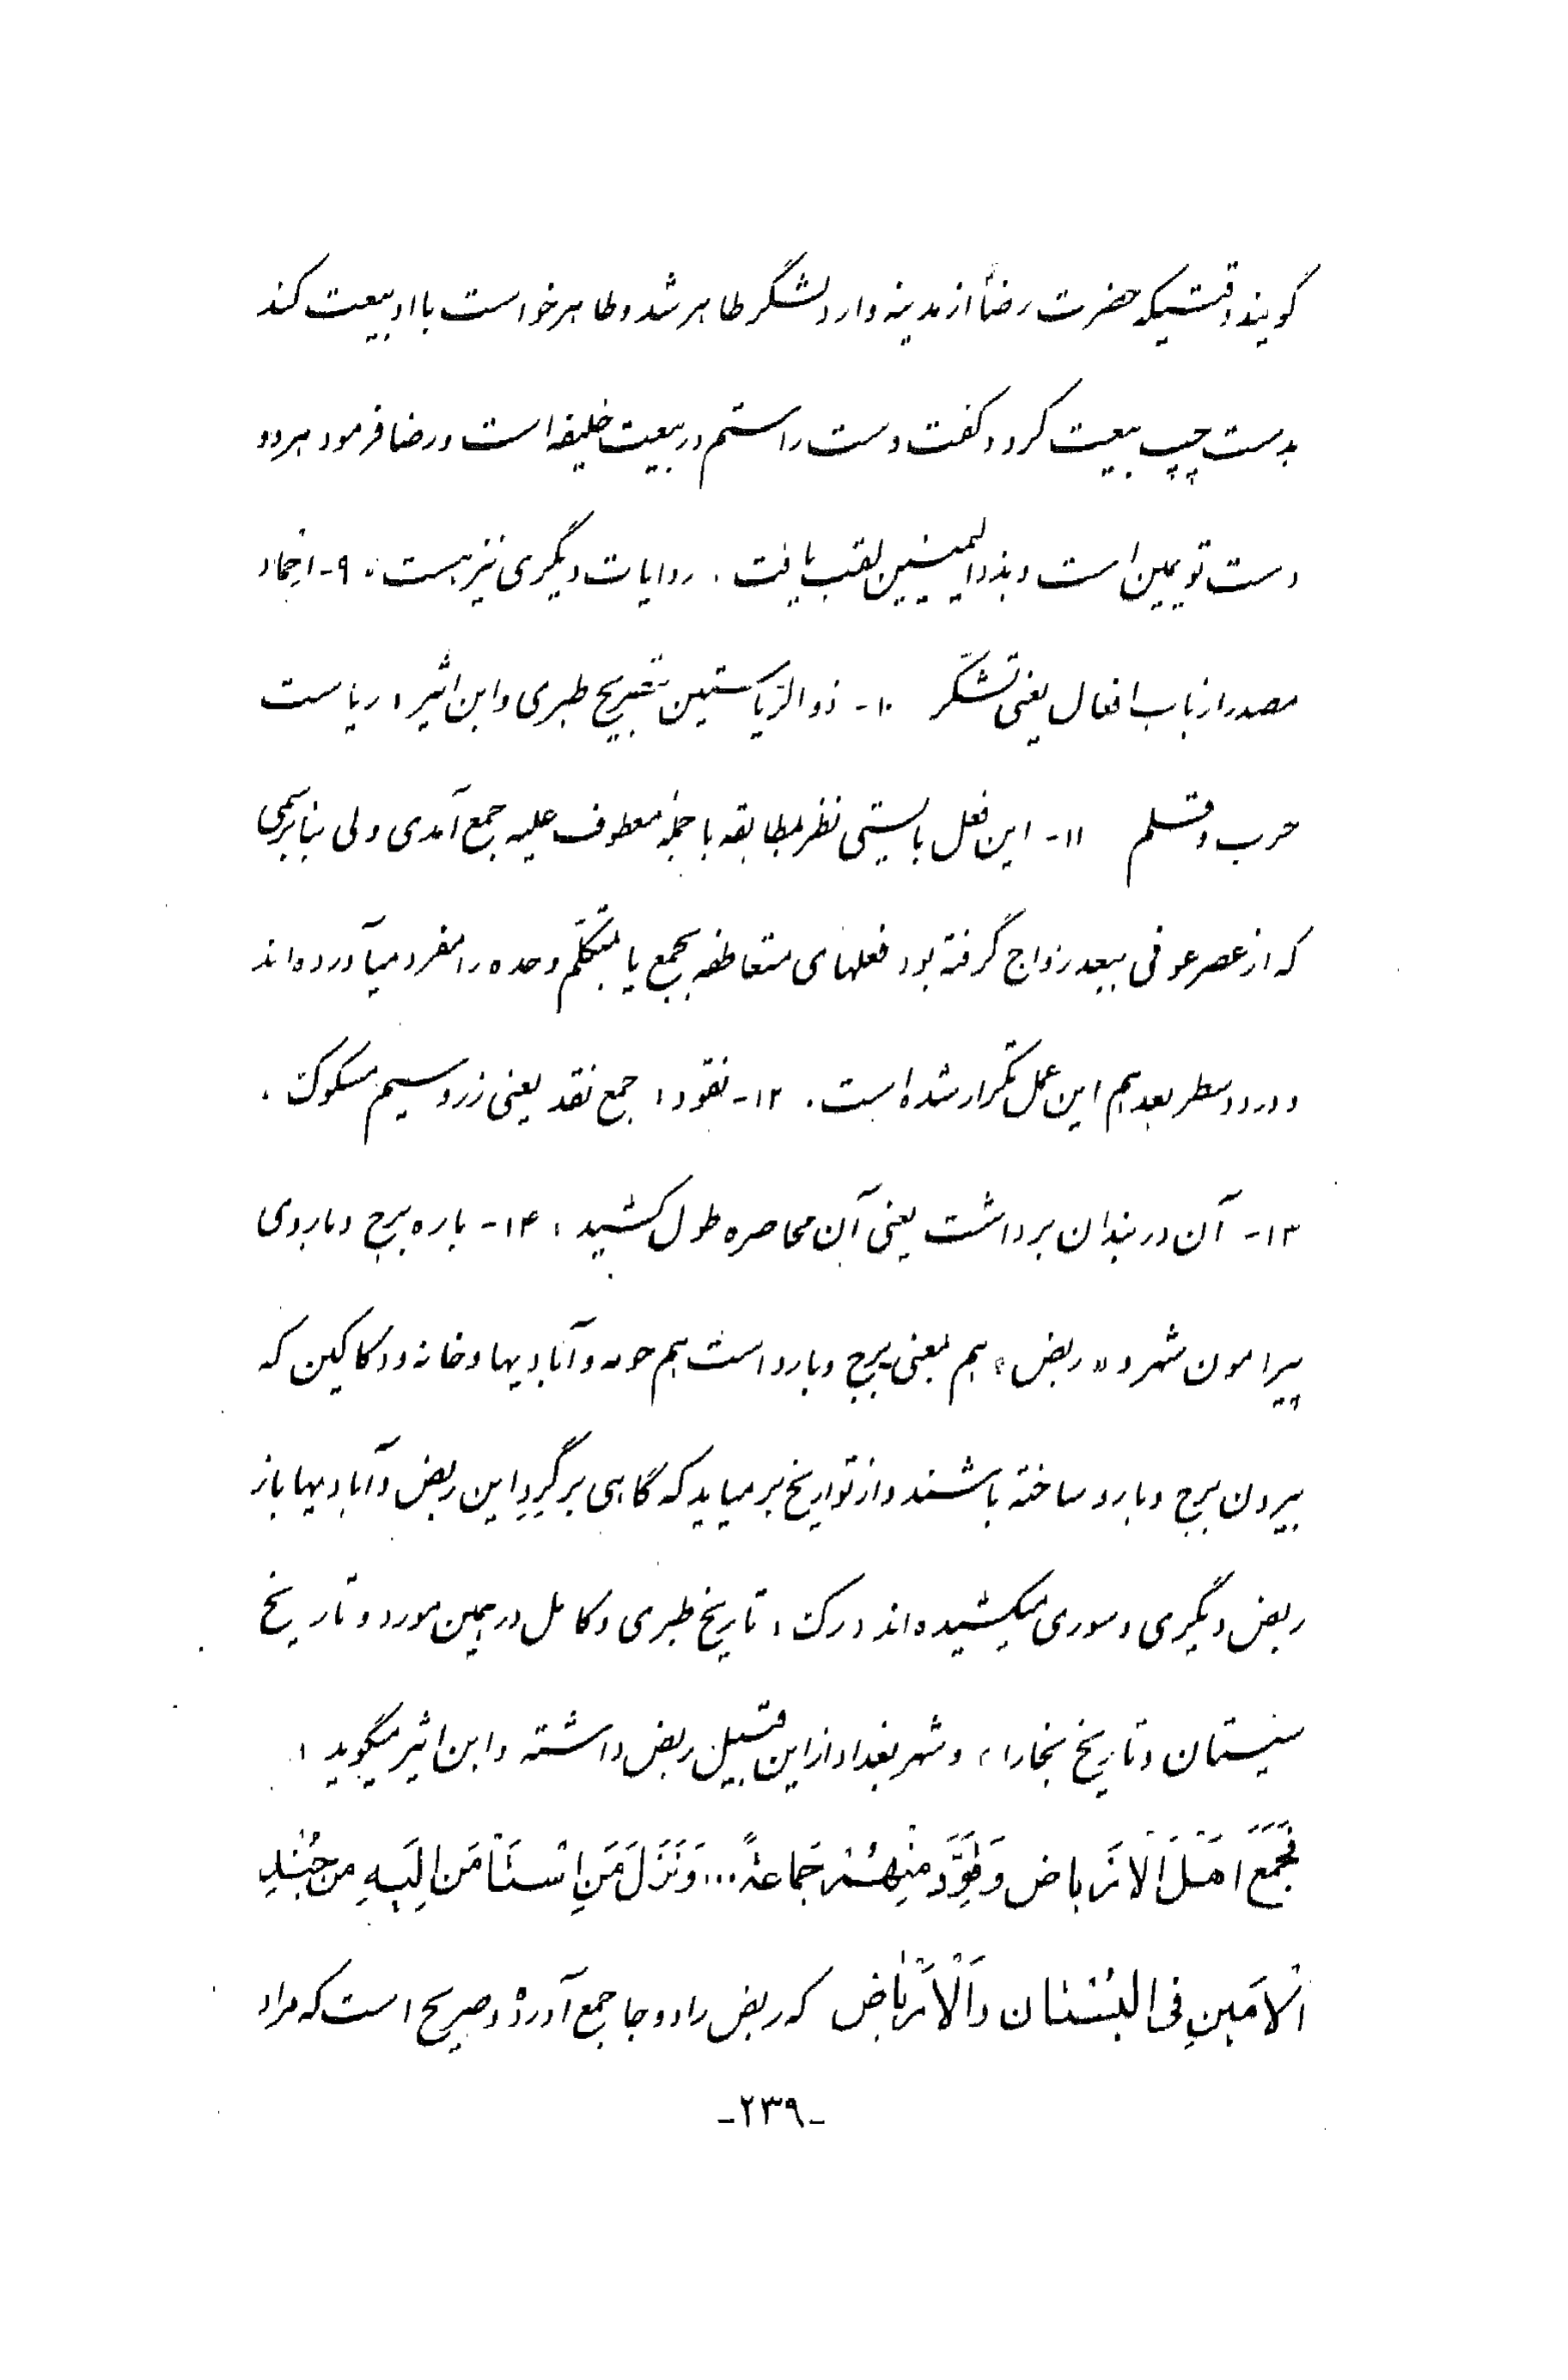 گویند وقتیکه حضرت رضا از مدینه وارد لشگر طاهر شد و طاهر خواست با او بیعت کند
بدست چپ بیعت کرد و گفت دست راستم در بیعت خلیفه است و رضا فرمود هر دو
دست تو یمین است و بذو الیمینین لقب یافت. روایات دیگری نیز هست. ۹- انجماد
مصدر از باب افعال یعنی تشکر ۱۰- ذو الریاستین بتصریح طبری و ابن اثیر: ریاست
حرب و قلم ۱۱- این فعل بایستی نظر بمطابقه با جمله معطوف علیه جمع آمدی ولی بنا برسمی
که از عصر عوفی ببعد رواج گرفته بود فعلهای متعاطفه بجمع یا متکلم وحده را مفرد میآورده‌اند
و در دو سطر بعد هم این عمل تکرار شده است. ۱۲- نقود: جمع نقد یعنی زر و سیم مسکوک.
۱۳- آن در بندان برداشت یعنی آن محاصره طول کشید: ۱۴- باره برج و باروی
پیرامون شهر و «ربض» هم بمعنی برج و بارو است هم حومه و آبادیها و خانه و دکاکین که
بیرون برج و بارو ساخته باشند و از تواریخ برمیاید که گاهی بر گِردِ این ربض و آبادیها باز
ربض دیگری و سوری میکشیده‌اند (رک: تاریخ طبری و کامل در همین مورد و تاریخ
سیستان و تاریخ بخارا) و شهر بغداد از این قبیل ربض داشته و ابن اثیر میگوید:
فَجَمَعَ اَهْلَ الْاَرْباض وَ قَوَّدَ مِنْهُمْ جَماعةً... وَ نَزَلَ مَنِ اسْتَأمَنَ اِلَیهِ مِن جُنْدِ
الْاَمینِ فی البُسْتان وَ الْاَرْباضِ که ربض را دو جا جمع آورده و صریح است که مراد
-۲۳۹-